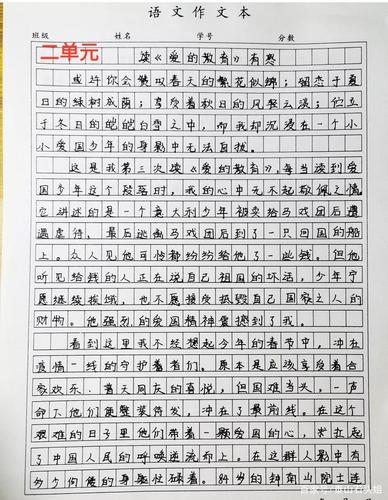 语文作文本
班级 姓名 学号 分数
二单元
读《爱的教育》有感
或许你会赞叹春天的繁花似锦；留恋于夏
日的绿树成荫；享受着秋日的风轻云淡；伫立
于冬日的皑皑白雪之中，而我却沉浸在一个小
小爱国少年的身影中无法自拔。
这是我第三次读《爱的教育》，每当读到爱
国少年这个段落时，我的心中无不起敬佩之情。
它讲述的是一个意大利少年被卖给马戏团后遭
遇虐待，最后逃离马戏团后到了一只回国的船
上。众人见他可怜都纷纷给他了一些钱。但他
听见给钱的人正在说自己祖国的坏话，少年宁
愿继续挨饿，也不愿接受诋毁自己国家之人的
财物。他强烈的爱国精神震撼到了我。
看到这里我不经想起今年的春节中，冲在
疫情一线的守护着者们。原本是应该享受着合
家欢乐、普天同庆的喜悦，但国难当头，一声
命下他们便整装待发，冲在了最前线。在这个
艰难的日子里他们带着一颗爱国的心，发起
了中国人民的呼唤逆流却上。在这群人影中有
多少佝偻的身躯忙碌着。84岁的钟南山院士连